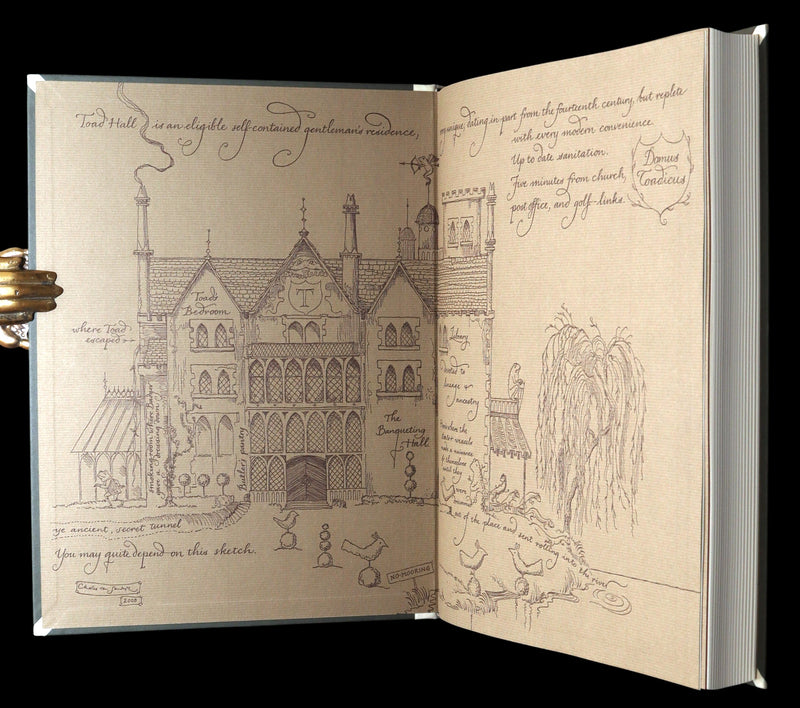 Toad Hall is an eligible self-contained gentleman's residence,
very unique; dating in part from the fourteenth century, but replete
with every modern convenience.
Up to date sanitation.
Five minutes from church,
post office, and golf-links.
Domus
Toadicus
T
Toad's
Bedroom
where Toad
escaped
smoking room, where Badger
gave a dressing down
Butler's pantry
The
Banqueting
Hall
Library
devoted to
lineage &
ancestry
where the
Water weasels
made a nuisance
of themselves
until they
were
out of the place and sent rolling into the river
ye ancient, secret tunnel
You may quite depend on this sketch.
NO MOORING
2008